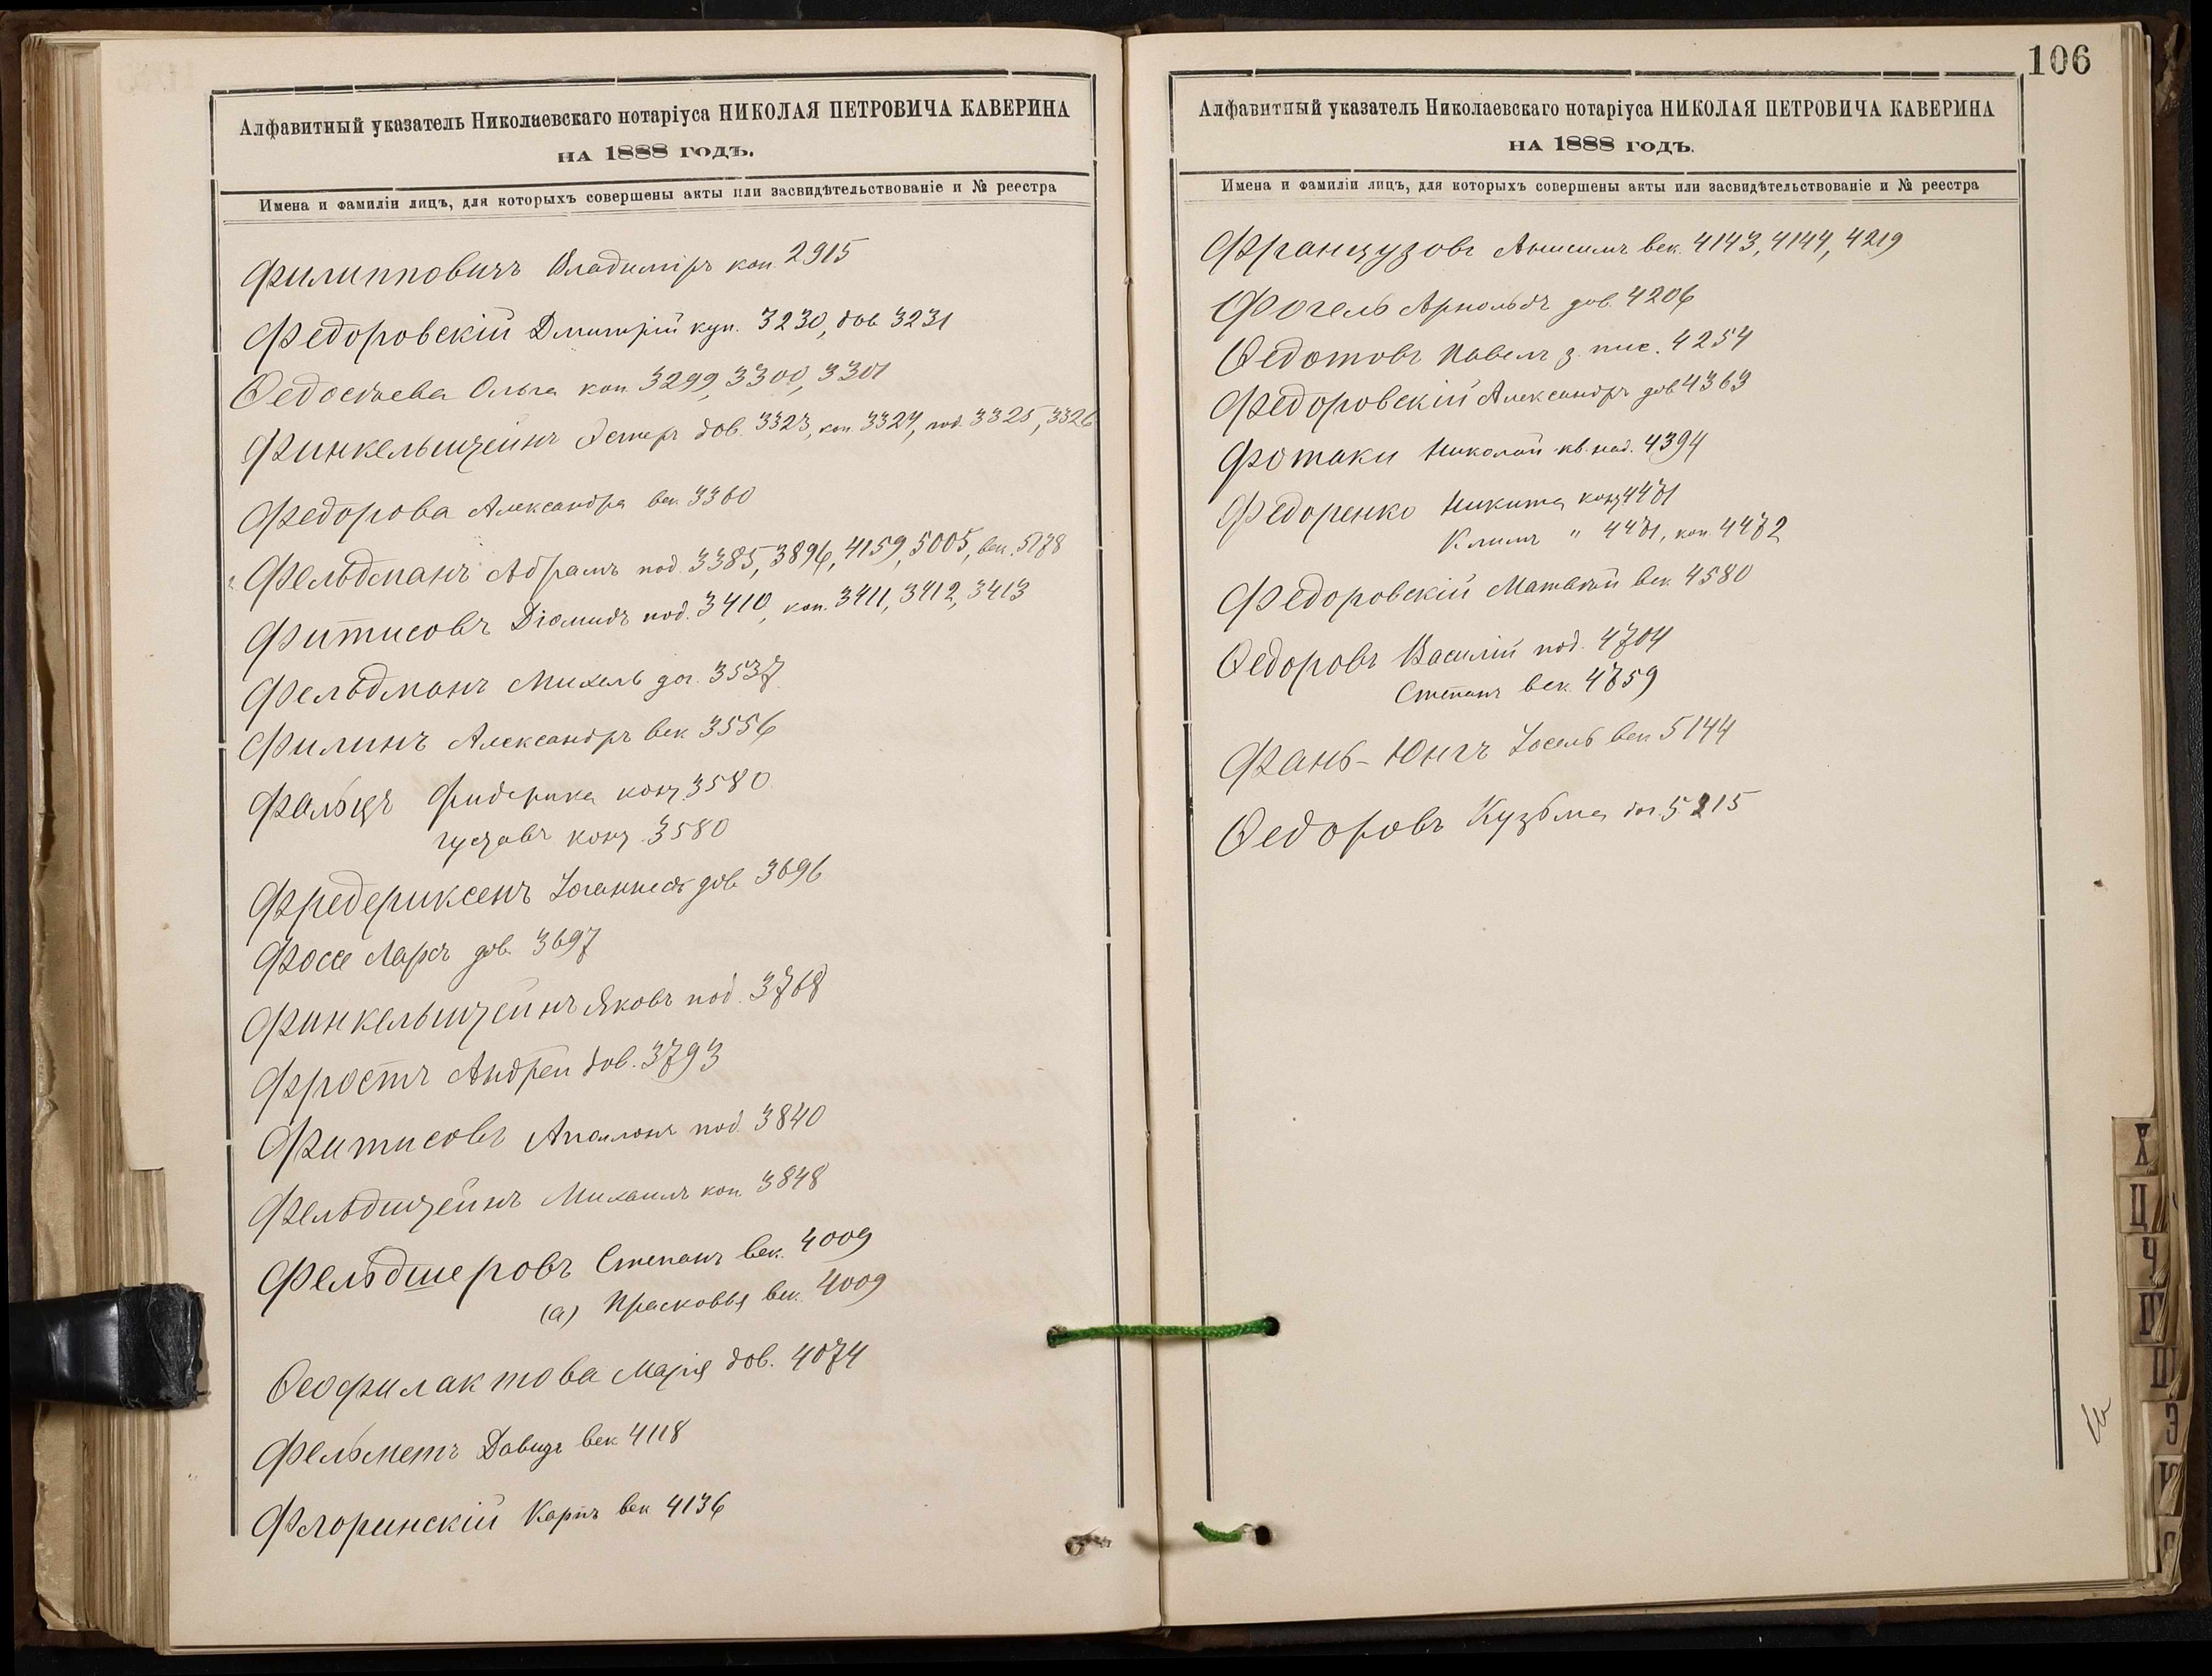 Алфавитный указатель Николаевскаго нотаріуса НИКОЛАЯ ПЕТРОВИЧА КАВЕРИНА
НА 1888 ГОДЪ.
Имена и фамиліи лицъ, для которыхъ совершены акты или засвидѣтельствованіе и № реестра
Филипповичъ Владимiръ коп. 2915
Федоровскій Дмитрій куп. 3230, дов 3231
Ѳедосѣева Ольга коп 3299, 3300, 3301
Финкельштейнъ Эстеръ дов. 3323, коп. 3324, под. 3325, 3326
Федорова Александра век 3360
Фельдманъ Абрамъ под. 3385, 3896, 4159, 5005, век. 5178
Фитисовъ Діомидъ под. 3410, коп. 3411, 3412, 3413
Фельдманъ Михель дог. 3537
Филинъ Александръ век 3556
Фальцъ Фидерика конт 3580
Густавъ конт 3580
Фредериксенъ Іоганнесъ дов 3696
Фоссе Ларсъ дов. 3697
Финкельштейнъ Яковъ под. 3768
Фростъ Андрей дов. 3793
Фитисовъ Аполонъ под 3840
Фельдштейнъ Михаилъ коп. 3848
Фельдшеровъ Степанъ век. 4009
(а) Прасковья век. 4009
Ѳеофилактова Марія дов. 4074
Фельметъ Давидъ век 4118
Флоринскій Карпъ век 4136
106
Алфавитный указатель Николаевскаго нотаріуса НИКОЛАЯ ПЕТРОВИЧА КАВЕРИНА
НА 1888 ГОДЪ.
Имена и фамиліи лицъ, для которыхъ совершены акты или засвидѣтельствованіе и № реестра
Французовъ Анисимъ век. 4143, 4144, 4219
Фогель Арнольдъ дов. 4206
Ѳедотовъ Павелъ з. пис. 4254
Федоровскій Александръ дов 4363
Фотаки Николай кв. над. 4394
Федоренко Никита конт 4471
Климъ " 4471, коп. 4472
Федоровскій Матвѣй век 4580
Ѳедоровъ Василій под. 4704
Степанъ век 4759
Фань-Юнгъ Іосель век 5144
Ѳедоровъ Кузьма дог. 5215
Х
Ц
Ч
Ш
Э
Ю